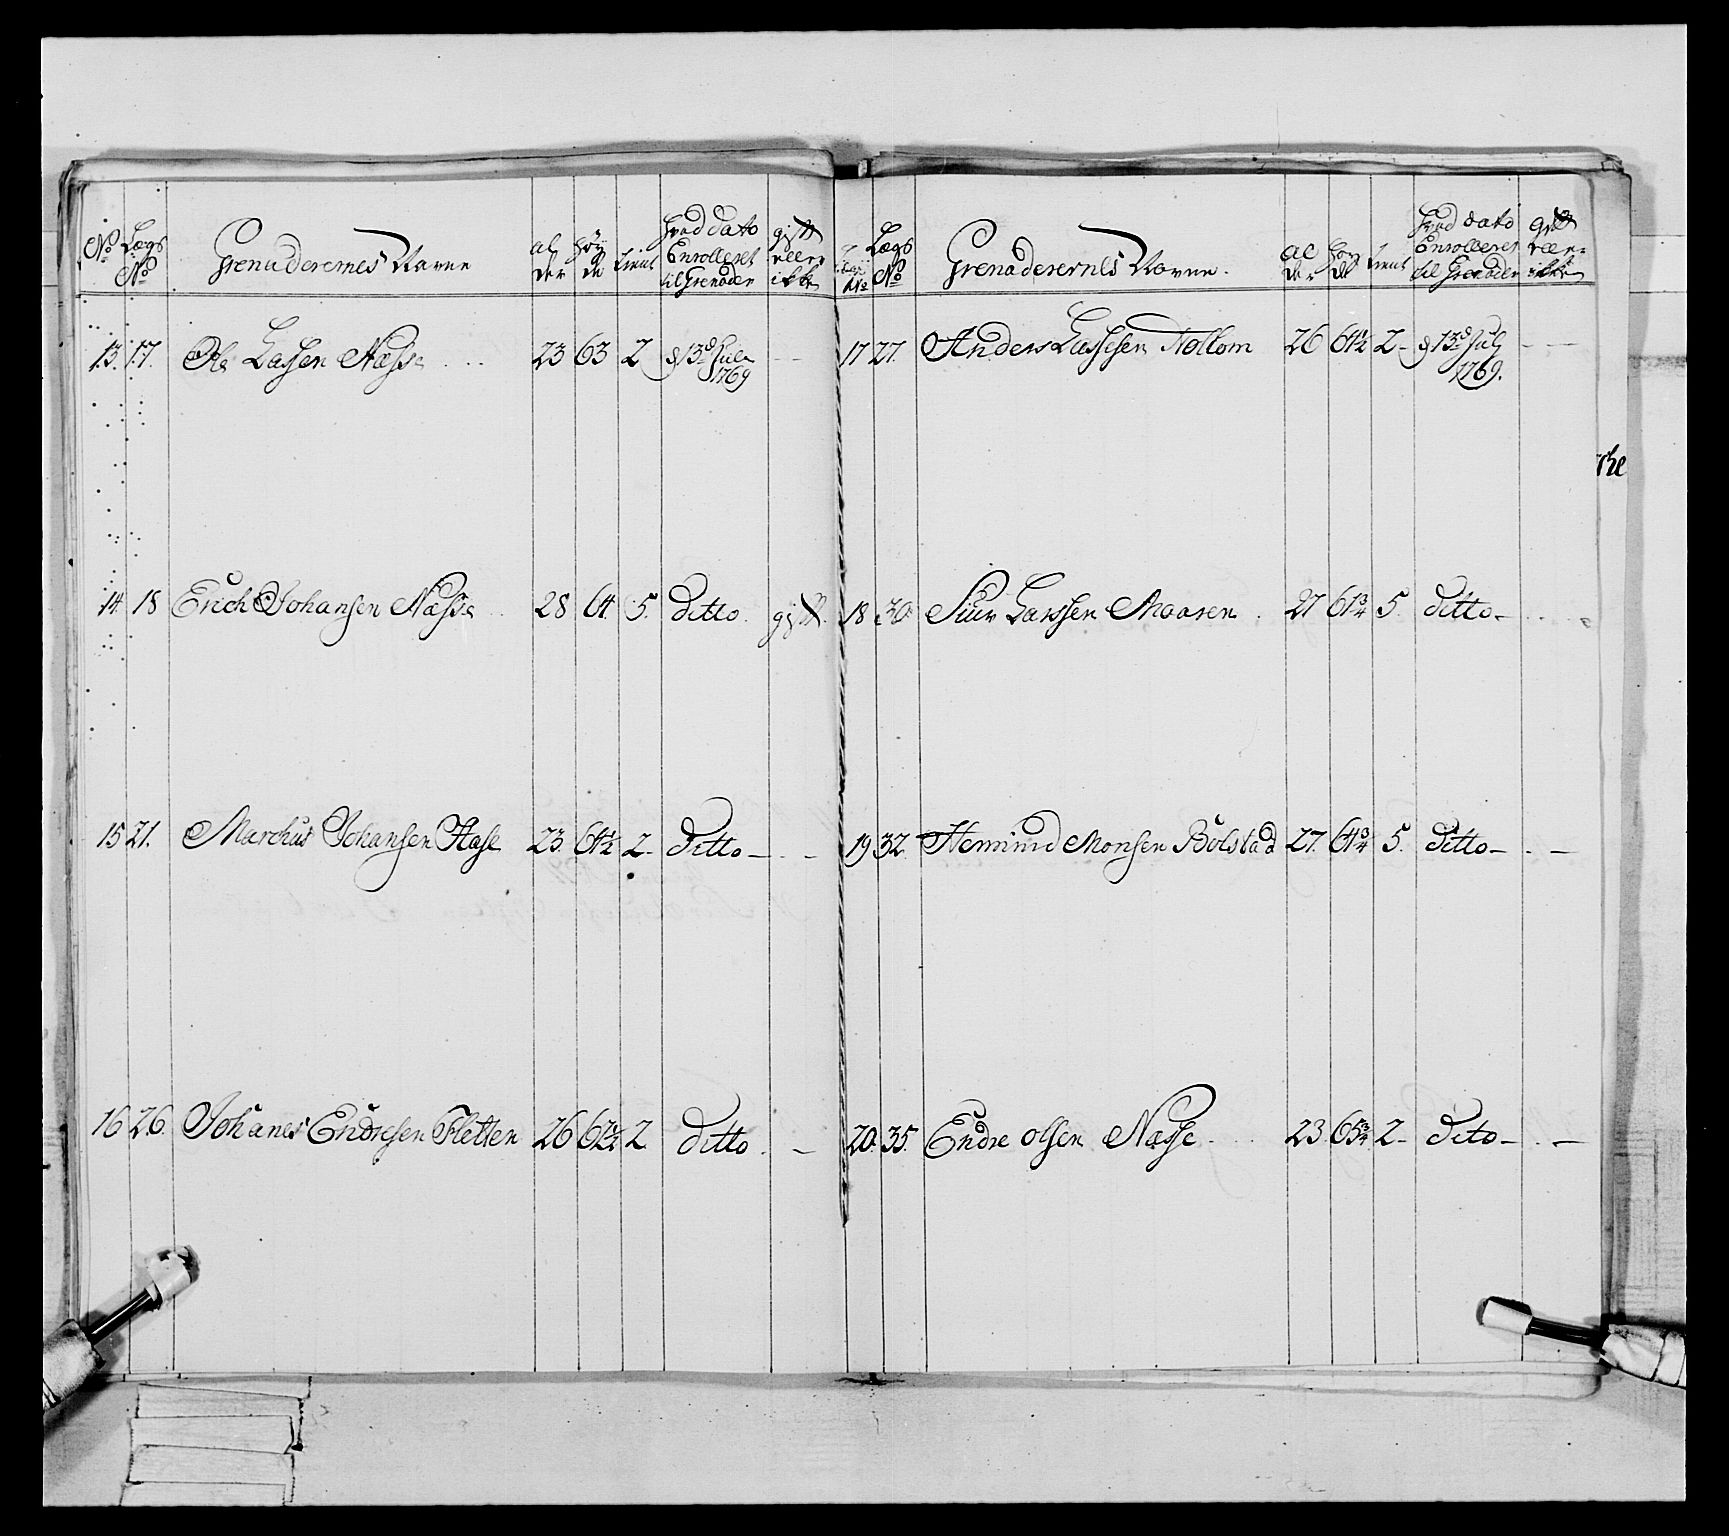 No Lægs No Grenaderernes Navne al der Høy de tient hvad dato Enrolleret til Grenader gift eller ikke
13. 17. Ole Lassen Næsse 23 63 2 d 13de July 1769 —
14 18 Erich Johansen Næsse 28 64. 5. ditto. gift.
15 21. Marchus Johansen Hage 23 64½ 2 - ditto — —
16 26. Johanes Endresen Fletten 26 62½ 2 ditto . —
Lægs No Grenaderernes Navne. al der Høy de tient hvad dato Enrolleret til Grenader gift eller ikke
17 27. Anders Lassesen 26 61½ 2 - d 13de July 1769. — —
18 30 Siur Larssen Maaren . 27 61¾ 5. ditto -
19 32. Hemund Monsen Bolstad 27. 61¾ 5. ditto — . —
20. 35. Endre olsen Næsse 23 65¾ 2 - dito — . —